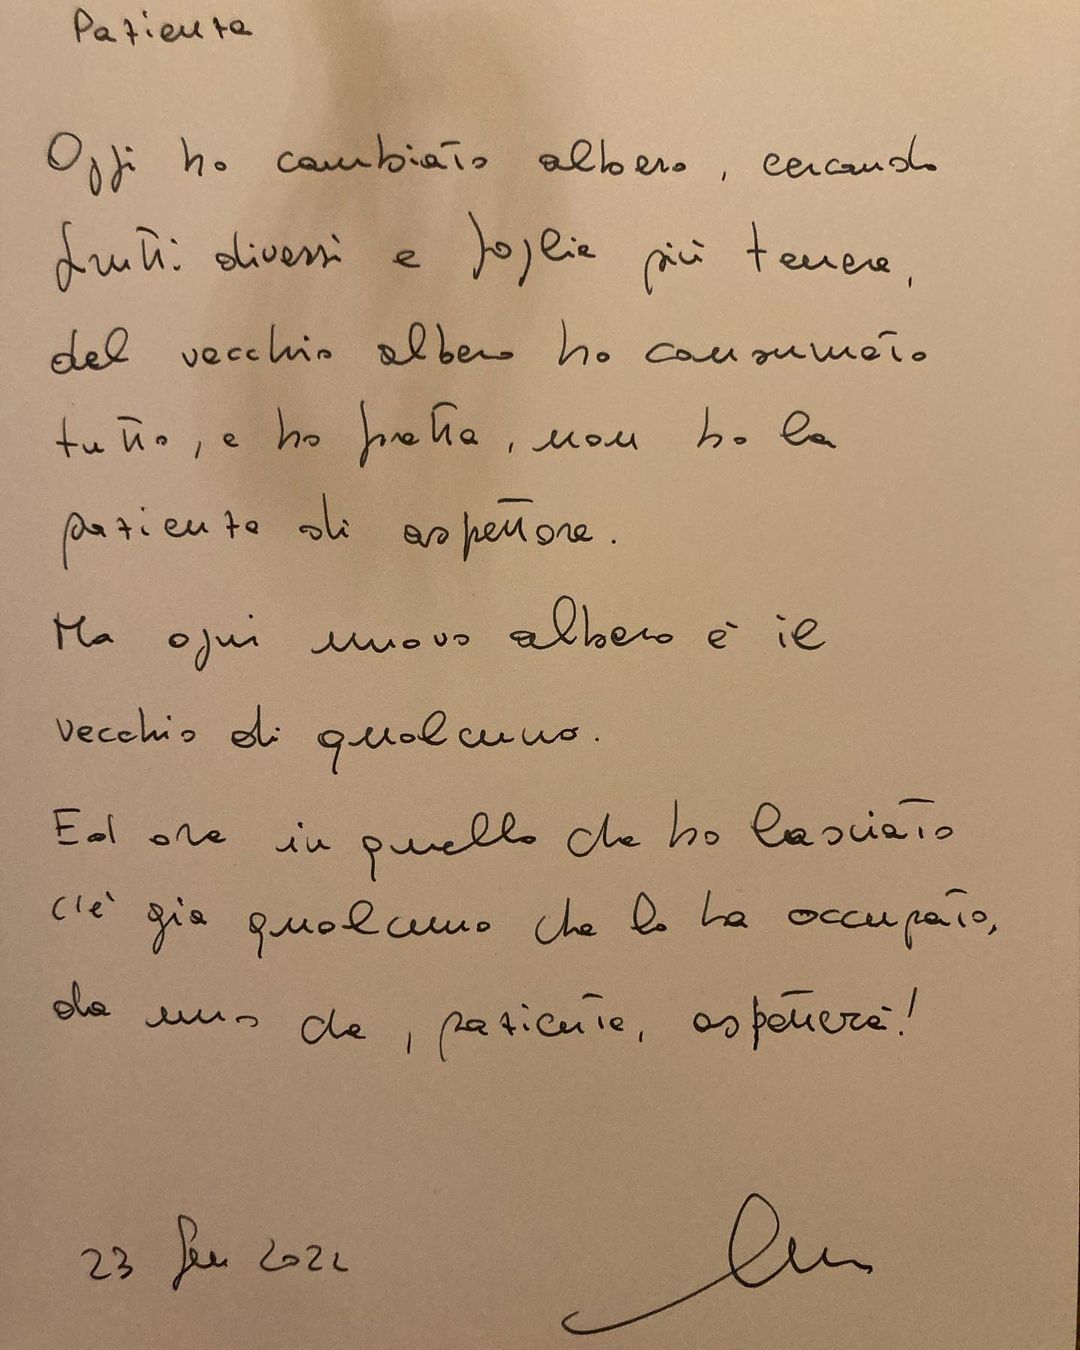 Pazienza
Oggi ho cambiato albero, cercando
frutti diversi e foglie più tenere,
del vecchio albero ho consumato
tutto, e ho fretta, non ho la
pazienza di aspettare.
Ma ogni nuovo albero è il
vecchio di qualcuno.
Ed ora in quello che ho lasciato
c'è già qualcuno che lo ha occupato,
da uno che, paziente, aspetterà!
23 Gen 2022